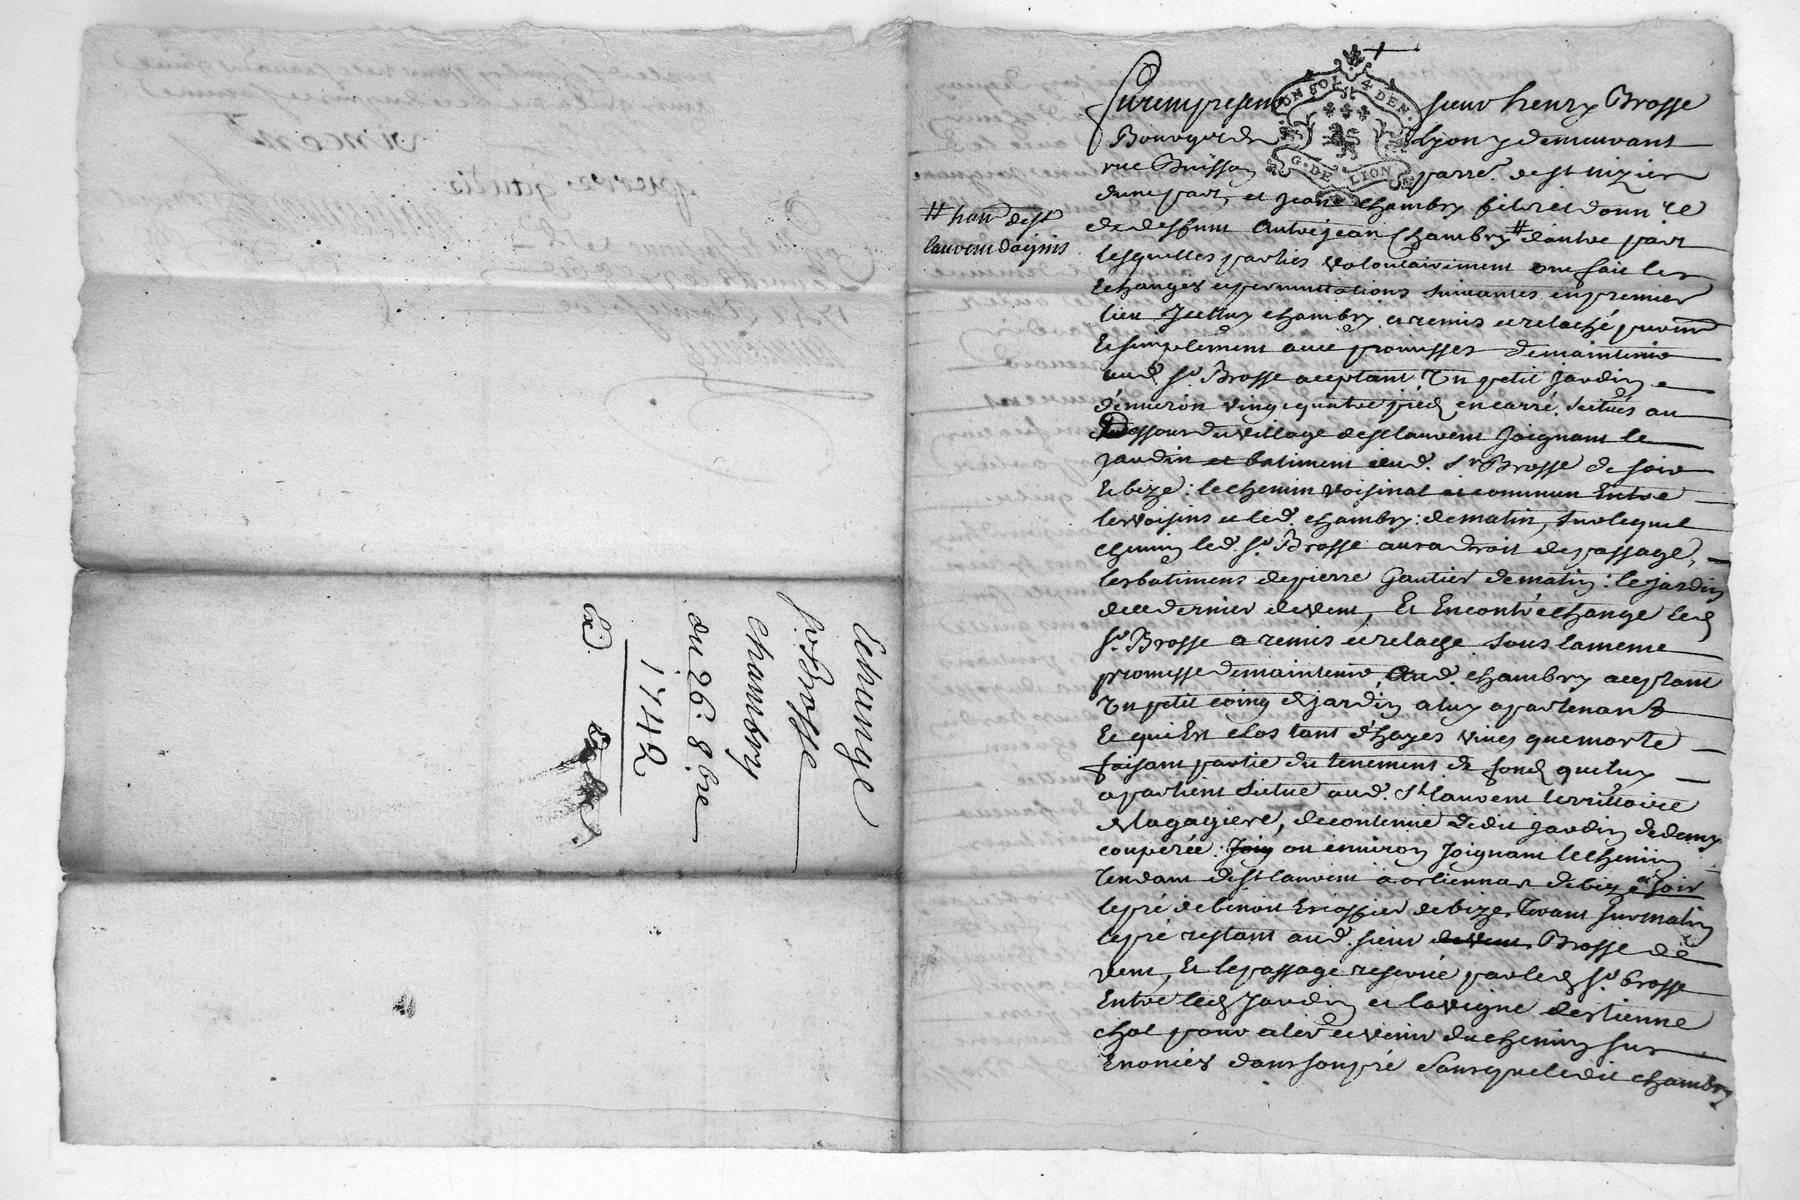 Echange
Sr. Brosse
Chambry
du 26. 8bre
1742
UN SOL 4 DEN.
G. DE LION
Furent presens sieur henry Brosse
Bourgeois de Lyon y demeurant
rue Buisson parre. de st nizier
dune part, et Jean Chambry fils et donnre
de deffunt Autre jean Chambry # dautre part
# habt de st
laurent dagnis
lesquelles parties volontairement ont fait les
Echanges et permuttations suivantes en premier
lieu Icelluy chambry a remis et relaché purement
Et simplement avec promesses de maintenir
aud. Sr. Brosse acceptant Un petit Jardin
d'environ vingt quatre pieds en carré. Scitués au
Dessous du village de st laurent Joignant le
jardin et batiment dud. Sr Brosse de soir
Et bize: le chemin voisinal et commun Entre
les voisins et led. chambry: de matin, sur lequel
chemin led. Sr. Brosse aura droit de passage,
les batimens de pierre Gautier de matin: le jardin
de ce dernier de vent, Et En contr'echange led
Sr. Brosse a remis et relaché sous la meme
promesse de maintenir Aud. chambry acceptant
Un petit coing de jardin a luy apartenant
Et qui Est clos tant d'hayes vives que morte
faisant partie du tenement de fond que luy
apartient Scitué aud. St laurent territtoire
de lagagiere, de contenue ledit jardin de demy
couperée. Joig ou environ Joignant le chemin
Tendant de st laurent a orliennas de bize et soir
le pré de benoit Escoffier de bize Tirant sur matin
le pré restant aud. sieur de vent Brosse de
vent, Et le passage reservé par led Sr. brosse
Entre led Jardin et la vigne d'estienne
chol pour aler et venir du chemin sus
Enoncés dans son pré Sans que ledit chambry